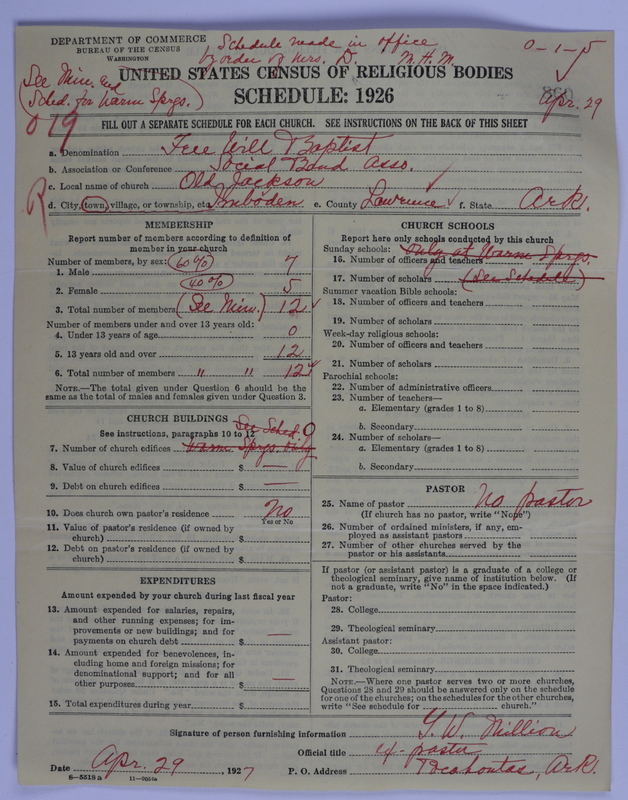 DEPARTMENT OF COMMERCE
BUREAU OF THE CENSUS
WASHINGTON
Schedule made in office
by order of Mrs. D. M.H.M.
0-1-5
See Min. and
Sched. for Warm Sprgs.
UNITED STATES CENSUS OF RELIGIOUS BODIES
SCHEDULE: 1926
Apr. 29
FILL OUT A SEPARATE SCHEDULE FOR EACH CHURCH. SEE INSTRUCTIONS ON THE BACK OF THIS SHEET
a. Denomination Free Will Baptist
b. Association or Conference Social Band Asso.
c. Local name of church Old Jackson
d. City, town, village, or township, etc. Imboden e. County Lawrence f. State Ark.
R
MEMBERSHIP
Report number of members according to definition of
member in your church
Number of members, by sex: (60%)
1. Male 7
(40%)
2. Female 5
3. Total number of members (See Min.) 12
Number of members under and over 13 years old:
4. Under 13 years of age 0
5. 13 years old and over 12
6. Total number of members " " 12
NOTE.—The total given under Question 6 should be the
same as the total of males and females given under Question 3.
CHURCH BUILDINGS
See instructions, paragraphs 10 to 12 See Sched.
7. Number of church edifices Warm Sprgs. only 0
8. Value of church edifices $ —
9. Debt on church edifices $ —
10. Does church own pastor's residence No
Yes or No
11. Value of pastor's residence (if owned by
church) $
12. Debt on pastor's residence (if owned by
church) $
EXPENDITURES
Amount expended by your church during last fiscal year
13. Amount expended for salaries, repairs,
and other running expenses; for im-
provements or new buildings; and for
payments on church debt $ —
14. Amount expended for benevolences, in-
cluding home and foreign missions; for
denominational support; and for all
other purposes $ —
15. Total expenditures during year $
CHURCH SCHOOLS
Report here only schools conducted by this church
Sunday schools: Only at Warm Sprgs.
16. Number of officers and teachers
17. Number of scholars (See Schedule)
Summer vacation Bible schools:
18. Number of officers and teachers
19. Number of scholars
Week-day religious schools:
20. Number of officers and teachers
21. Number of scholars
Parochial schools:
22. Number of administrative officers
23. Number of teachers—
a. Elementary (grades 1 to 8)
b. Secondary
24. Number of scholars—
a. Elementary (grades 1 to 8)
b. Secondary
PASTOR
25. Name of pastor No pastor
(If church has no pastor, write "None")
26. Number of ordained ministers, if any, em-
ployed as assistant pastors
27. Number of other churches served by the
pastor or his assistants
If pastor (or assistant pastor) is a graduate of a college or
theological seminary, give name of institution below. (If
not a graduate, write "No" in the space indicated.)
Pastor:
28. College
29. Theological seminary
Assistant pastor:
30. College
31. Theological seminary
NOTE.—Where one pastor serves two or more churches,
Questions 28 and 29 should be answered only on the schedule
for one of the churches; on the schedules for the other churches,
write "See schedule for church."
Signature of person furnishing information G. W. Million
Official title Ex-pastor
Date Apr. 29, 1927 P. O. Address Pocahontas, Ark.
8-5518 a 11-9054a